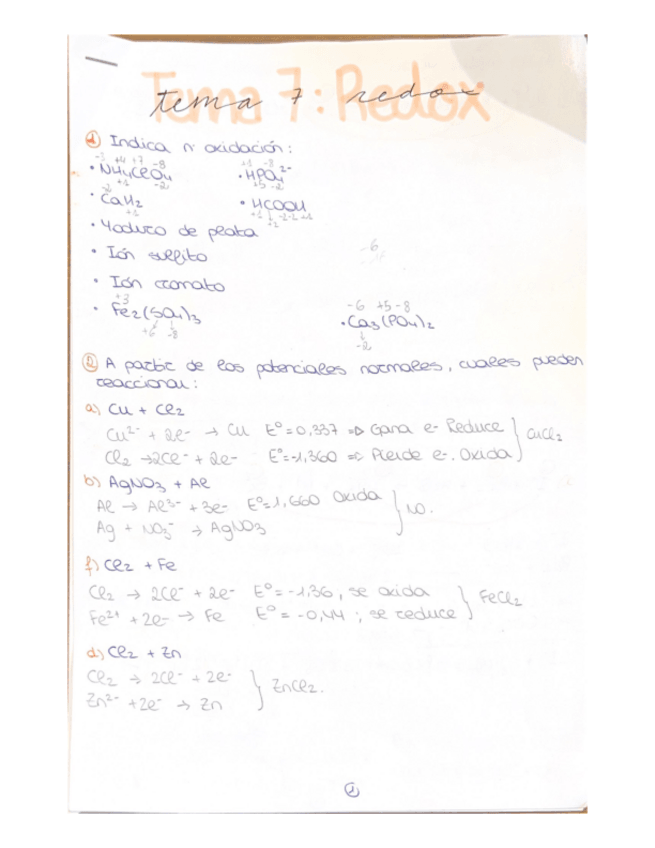 Tema 7: Redox
tema 7 redox
① Indica nº oxidación:
-3 +4 +7 -8
• NH4ClO4
+1 -2
+1 -8
• HPO4 2-
+5 -2
-2
• CaH2
+1
• HCOOH
• Yoduro de plata
• Ión sulfito
-6
• Ión cromato
+3
• Fe2(SO4)3
+6 -8
-6 +5 -8
• Ca3(PO4)2
-2
② A partir de los potenciales normales, cuales pueden
reaccionar:
a) Cu + Cl2
Cu2- + 2e- → Cu E° = 0,337 => Gana e- Reduce } CuCl2
Cl2 → 2Cl- + 2e- E° = -1,360 => Pierde e-. Oxida
b) AgNO3 + Al
Al → Al3- + 3e- E° = 1,660 Oxida } NO.
Ag + NO3- → AgNO3
f) Cl2 + Fe
Cl2 → 2Cl- + 2e- E° = -1,36, se oxida } FeCl2
Fe2+ + 2e- → Fe E° = -0,44 ; se reduce
d) Cl2 + Zn
Cl2 → 2Cl- + 2e- } ZnCl2.
Zn2- + 2e- → Zn
①